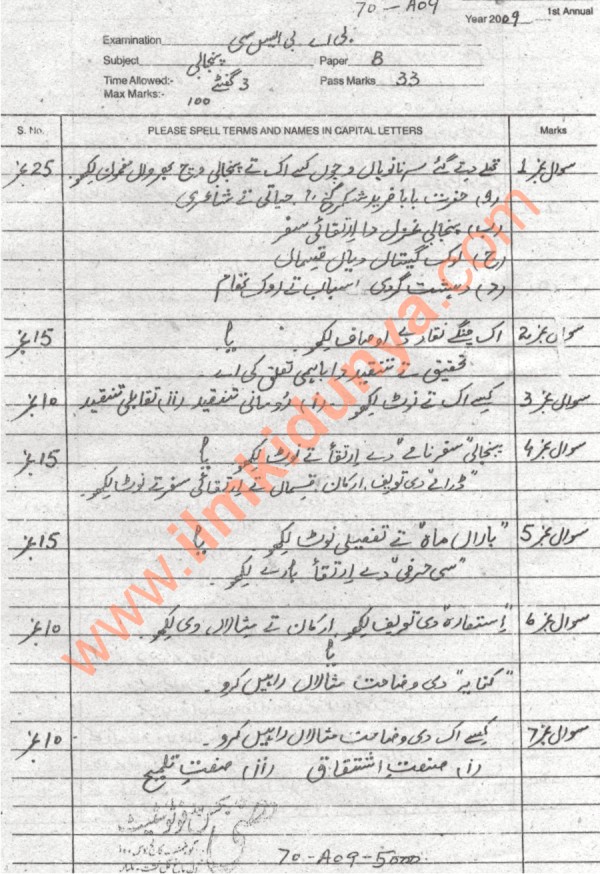 70-A09
1st Annual
Year 2009
Examination بی اے بی ایس سی
Subject پنجابی Paper B
Time Allowed:- 3 گھنٹے Pass Marks 33
Max Marks:- 100
S. No. PLEASE SPELL TERMS AND NAMES IN CAPITAL LETTERS Marks
سوال نمبر 1 تھلے دتے گئے سرناویاں وچوں کسے اک تے پنجابی وچ بھرواں مضمون لکھو۔ 25 نمبر
حضرت بابا فرید شکر گنج حیاتی تے شاعری
(ب) پنجابی غزل دا ارتقائی سفر
(ج) لوک گیتاں دیاں قسماں
(د) دہشت گردی اسباب تے روک تھام
سوال نمبر 2 اک چنگے نقاد دے اوصاف لکھو یا 15 نمبر
تحقیق تے تنقید دا باہمی تعلق کی اے۔
سوال نمبر 3 کسے اک تے نوٹ لکھو۔ (i) رومانی تنقید (ii) تقابلی تنقید 10 نمبر
سوال نمبر 4 پنجابی "سفرنامے" دے ارتقأ تے نوٹ لکھو یا 15 نمبر
"ڈرامے" دی تعریف، ارکان، قسماں تے ارتقائی سفر تے نوٹ لکھو۔
سوال نمبر 5 "باراں ماہ" تے تفصیلی نوٹ لکھو یا 15 نمبر
"سی حرفی" دے ارتقأ بارے لکھو۔
سوال نمبر 6 "استعارہ" دی تعریف لکھو ارکان تے مثالاں وی لکھو۔ 10 نمبر
یا
"کنایہ" دی وضاحت مثالاں راہیں کرو۔
سوال نمبر 7 کسے اک دی وضاحت مثالاں راہیں کرو۔ 10 نمبر
(i) صنعتِ اشتقاق (ii) صنعتِ تلمیح
70-A09-5000
www.ilmkidunya.com